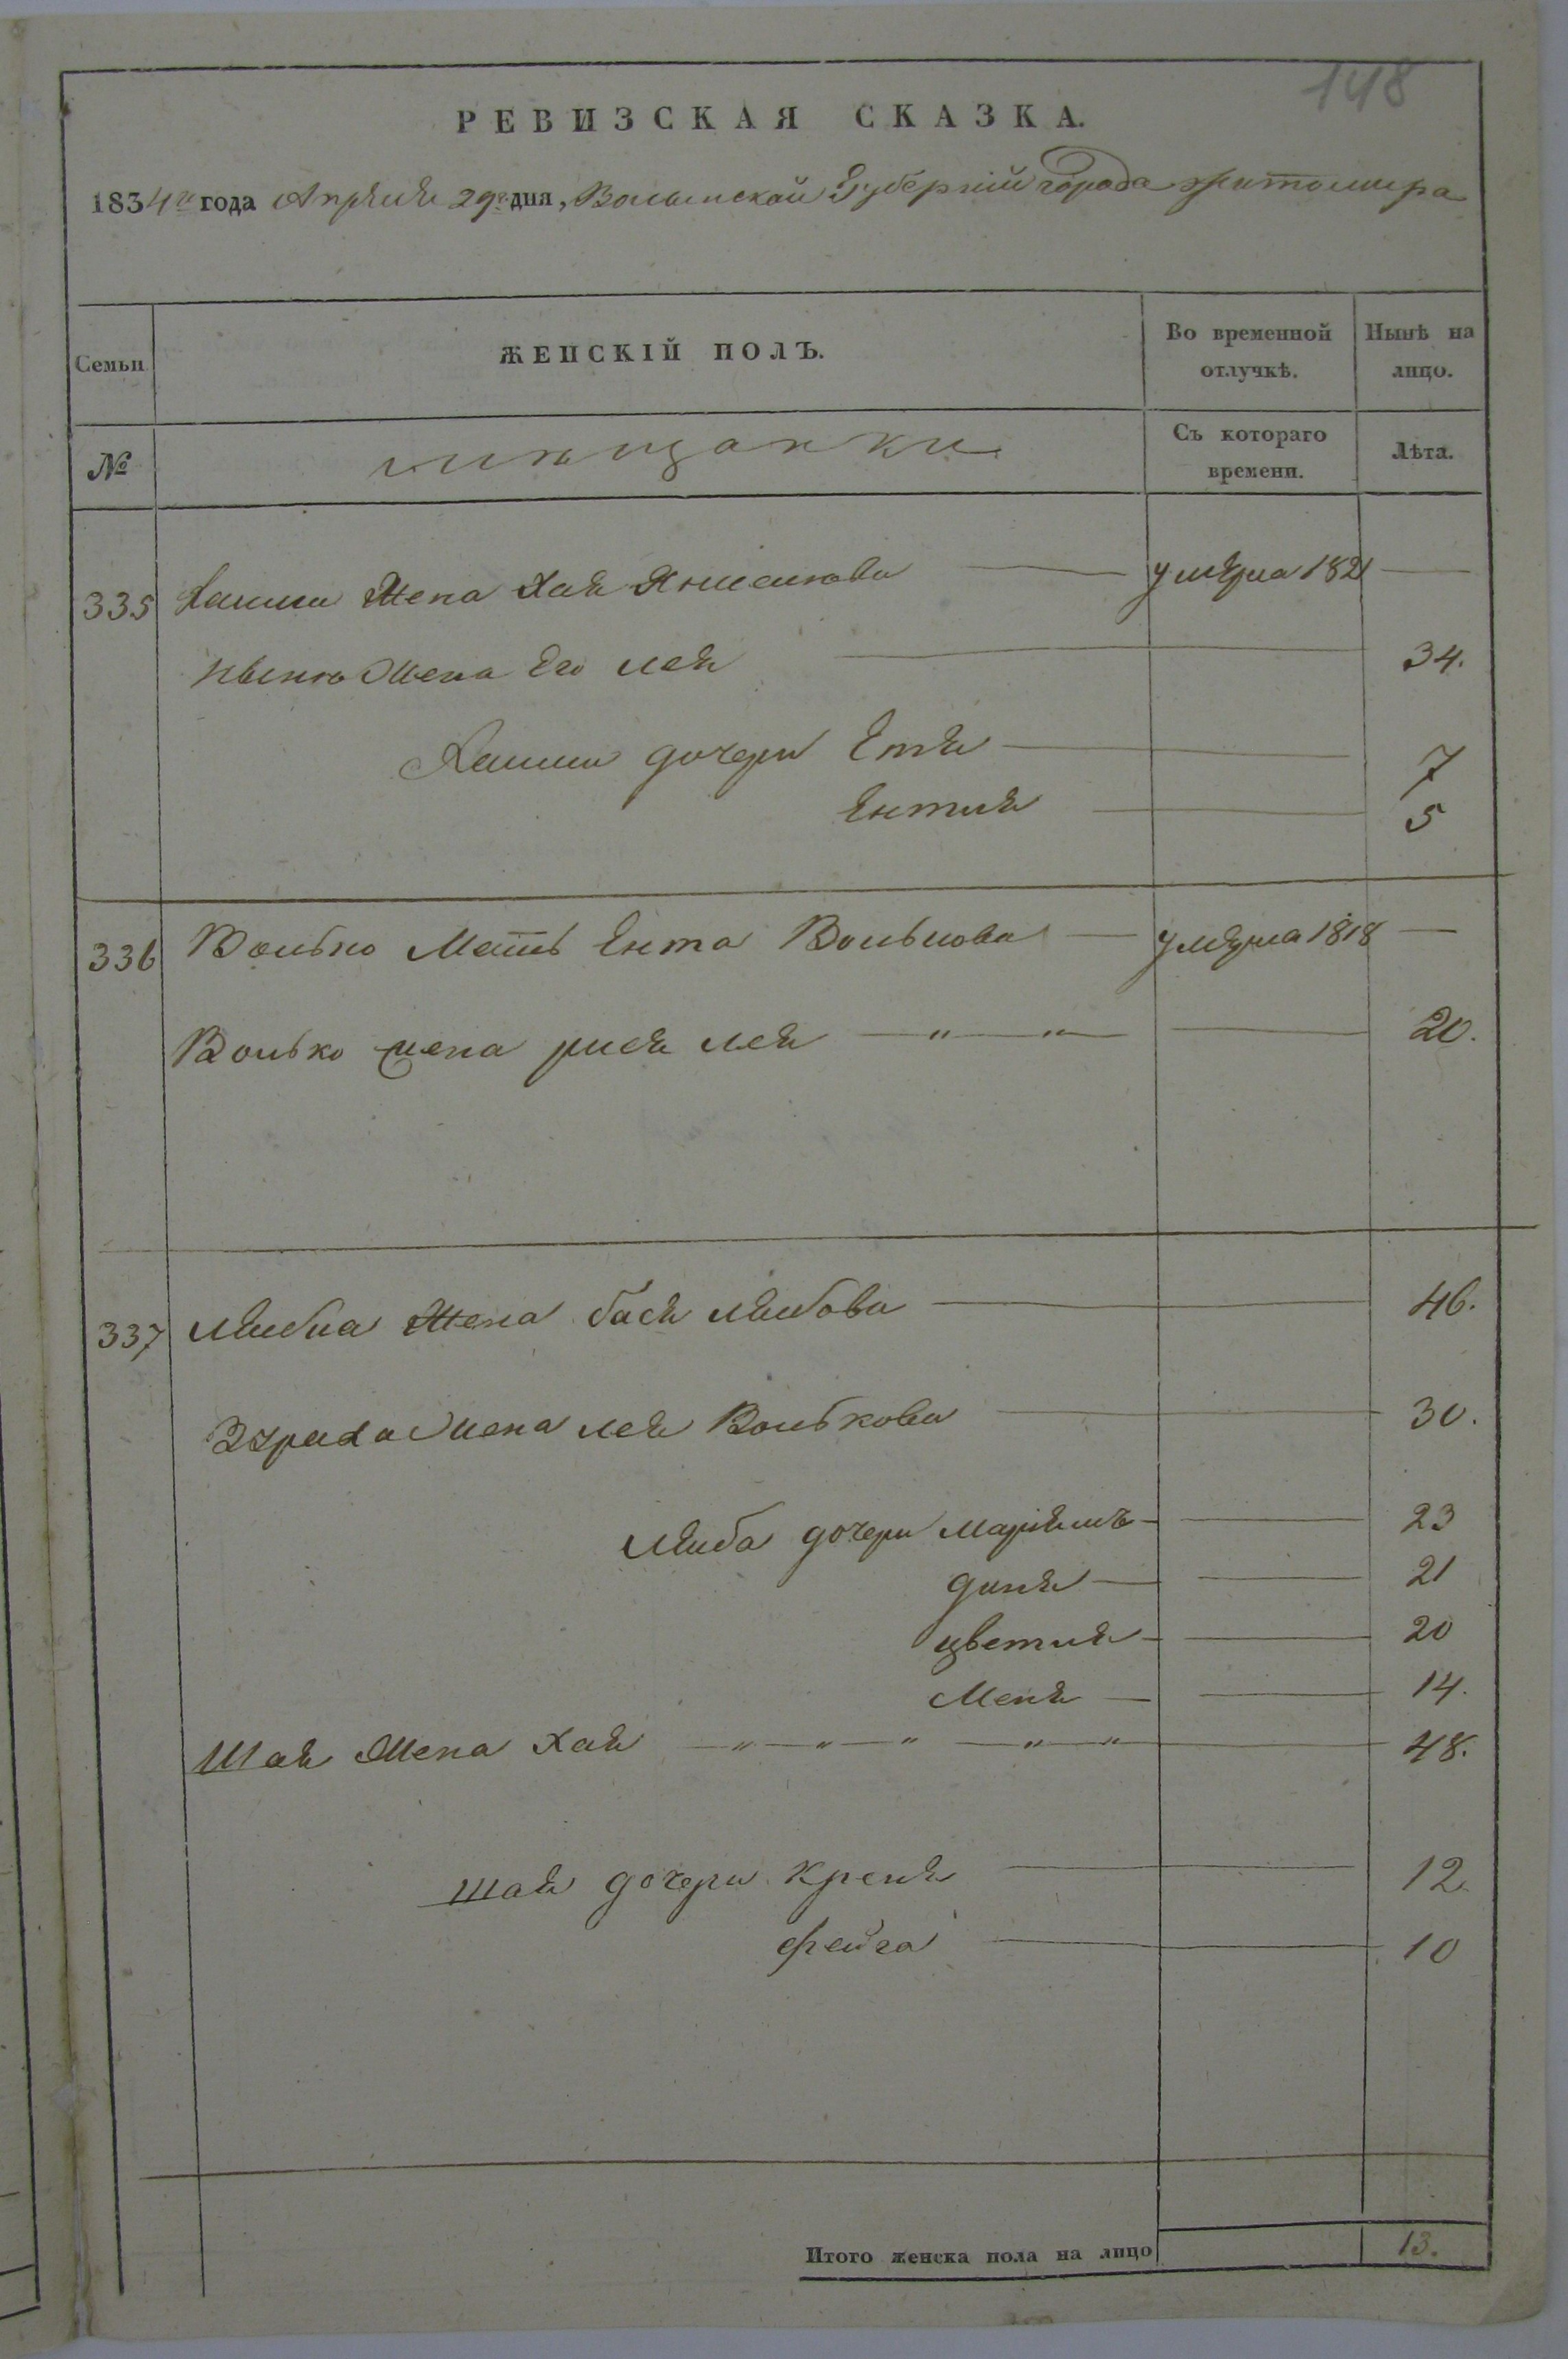 148
РЕВИЗСКАЯ СКАЗКА.
1834го года Апреля 29го дня, Волынской Губернии города Житомира
Семьи
ЖЕНСКІЙ ПОЛЪ.
Во временной отлучкѣ.
Нынѣ на лицо.
№
мещанки
Съ котораго времени.
Лѣта.
335 жена Хая умерла 182 —
жена Его лея — 34.
дочери Етя — 7
Ентля — 5
336 Волько Мать Ента — умерла 1818 —
Волько жена рися лея — " — " — 20.
337 Лейба жена бася лейбова — 46.
жена лея Волькова — 30.
Лейба дочери Маріямъ — 23
диня — 21
цветля — 20
Меня — 14.
Шая жена Хая — " — " — " — " — " 48.
шая дочери креня — 12
фейга — 10
Итого женска пола на лицо 13.